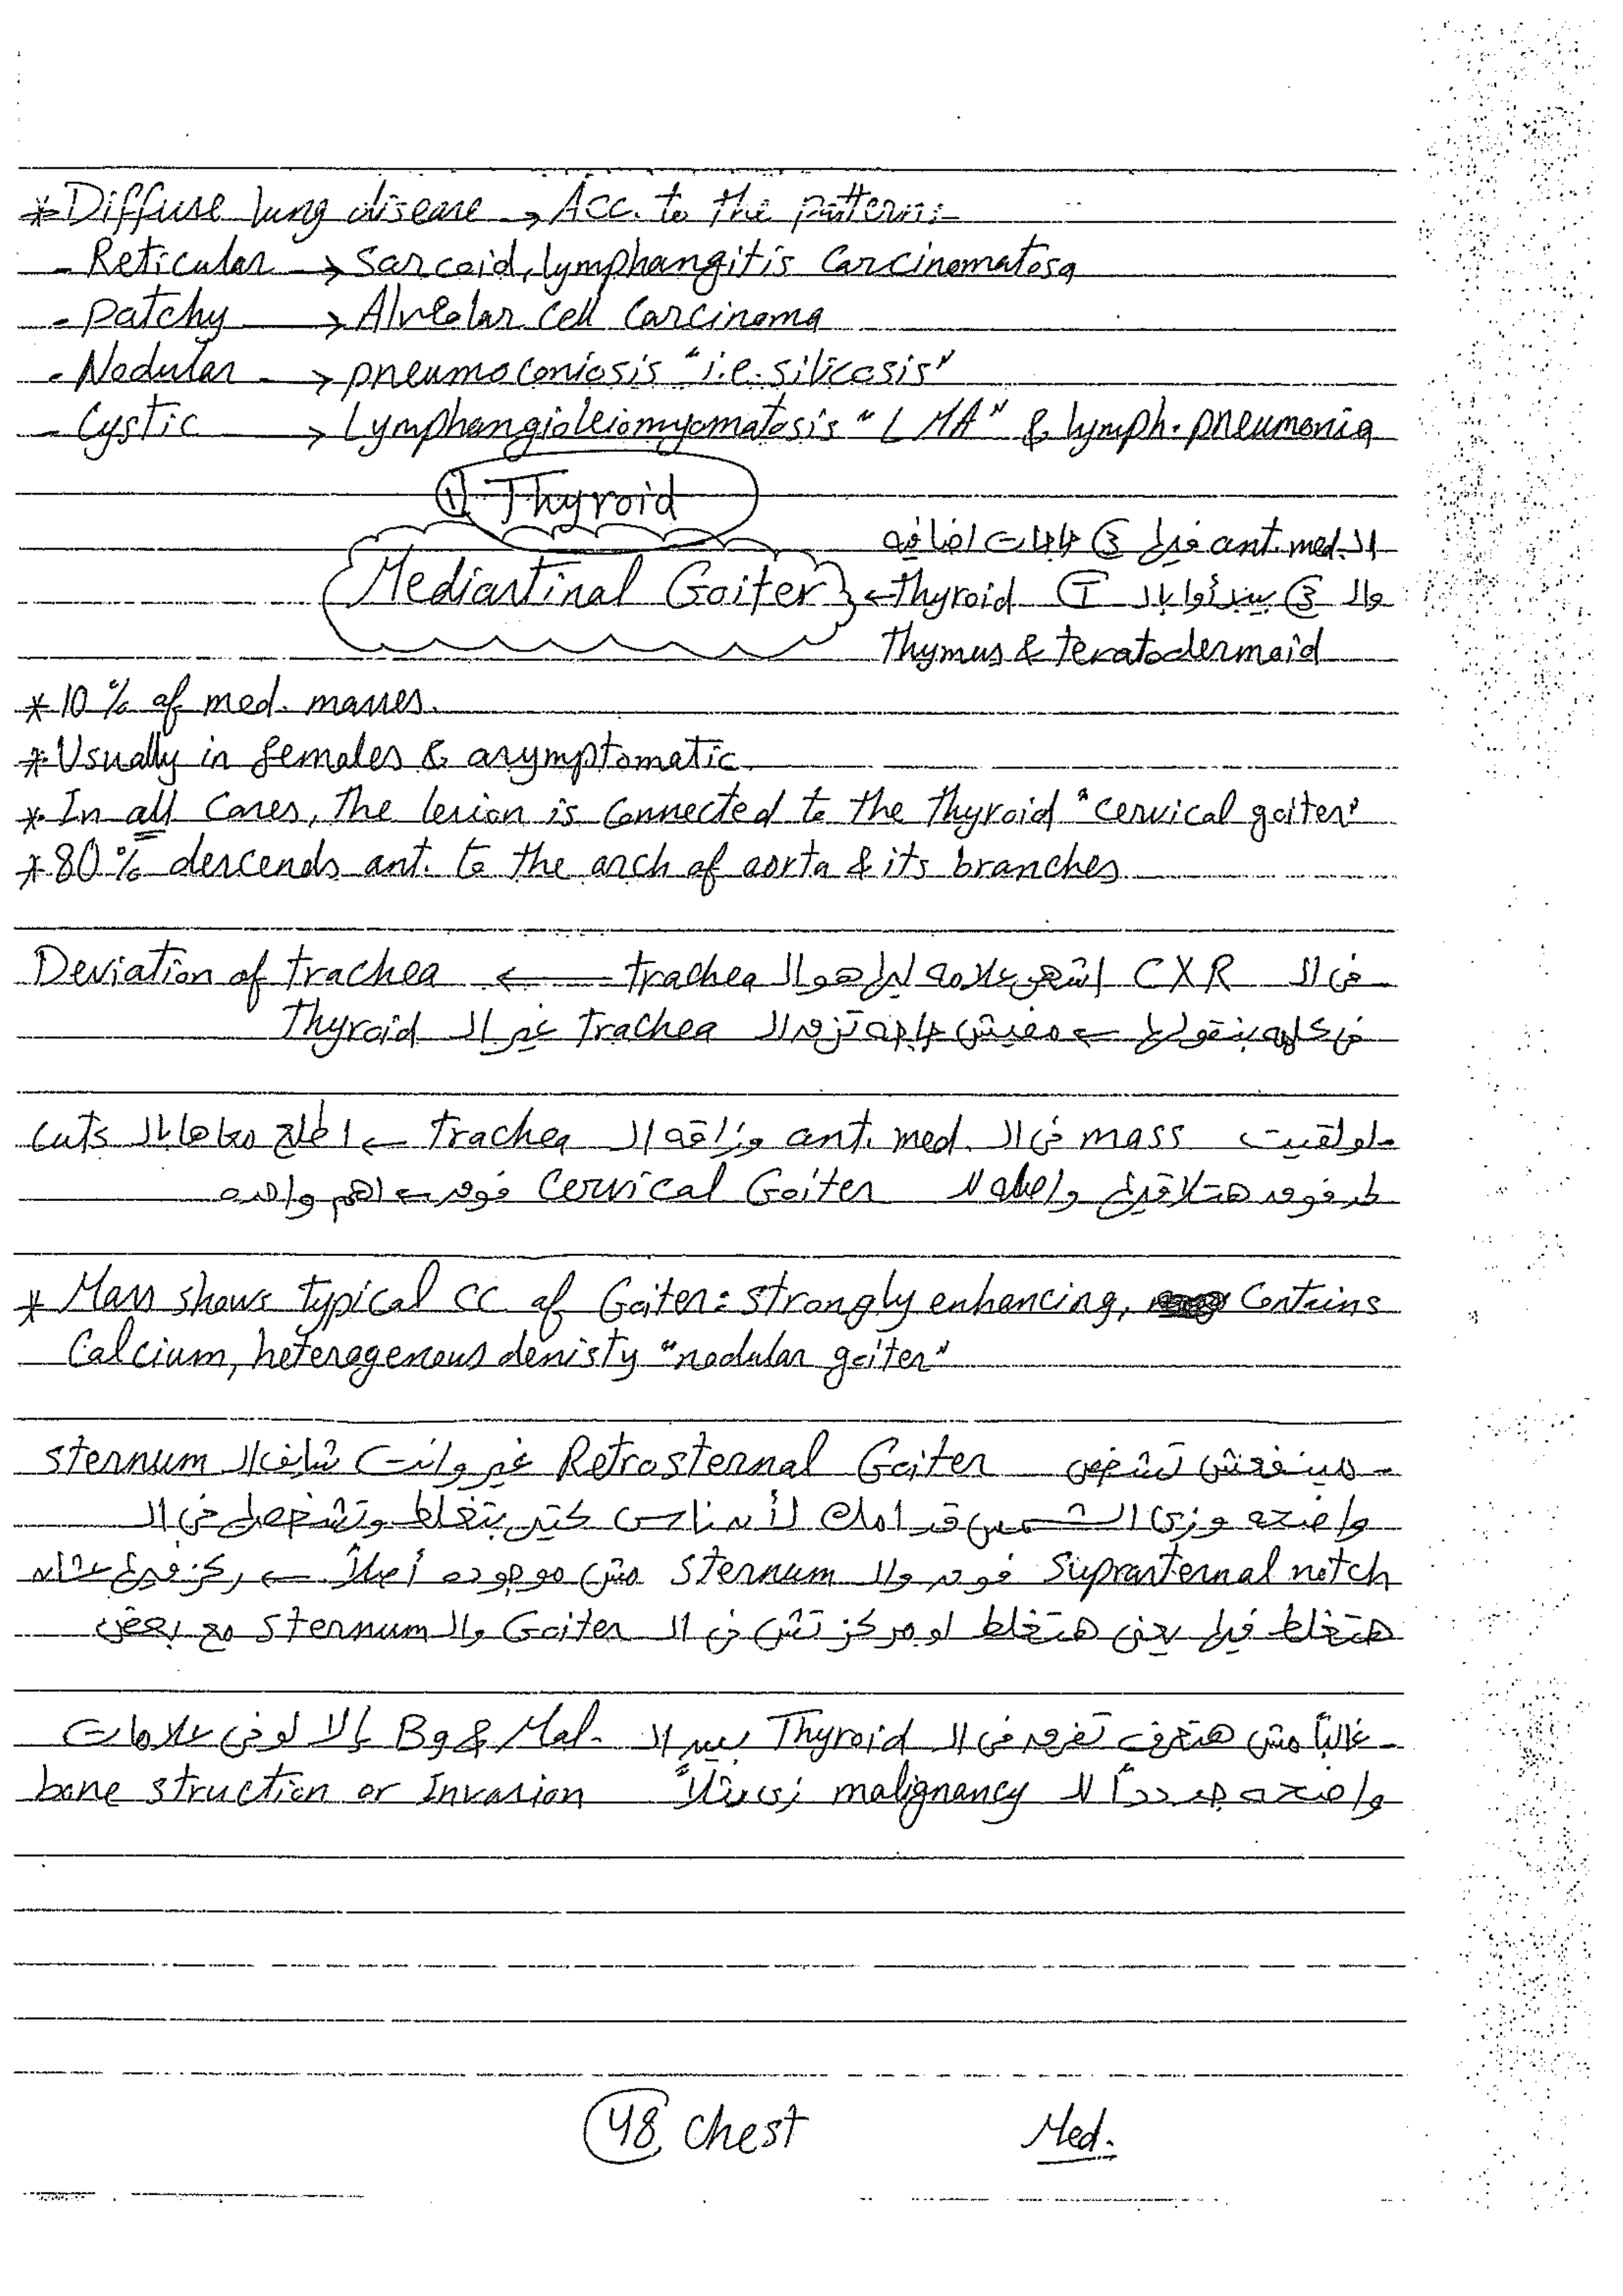 * Diffuse lung disease → Acc. to the pattern:-
- Reticular → Sarcoid, lymphangitis Carcinomatosa
- Patchy → Alveolar cell Carcinoma
- Nodular → pneumoconiosis "i.e. silicosis"
- Cystic → Lymphangioleiomyomatosis "LMA" & lymph. pneumonia
① Thyroid
Mediastinal Goiter
الـ ant. med. فيها ③ حاجات اضافيه
والـ ③ بيبدأوا بالـ T ← Thyroid
Thymus & teratodermoid
* 10 % of med. masses.
* Usually in females & asymptomatic
* In all Cases, the lesion is Connected to the thyroid "cervical goiter"
* 80 % descends ant. to the arch of aorta & its branches
- فى الـ CXR اشهر علامه ليها هو الـ trachea ← Deviation of trachea
فى كلمه بنقولها ← مفيش حاجه تزق الـ trachea غير الـ Thyroid
- لو لقيت mass فى الـ ant. med. وزاقه الـ trachea ← اطلع معاها بالـ cuts
لفوق هتلاقيها واصله لـ Cervical Goiter فوق ← اهم واحده
* Mass shows typical CC of Goiter: strongly enhancing, Contains
Calcium, heterogenous denisty "nodular goiter"
- مينفعش تشخص Retrosternal Goiter غير وانت شايف الـ sternum
واضحه وزى الشمس قدامك لأن ناس كتير بتغلط وتشخصها فى الـ
Suprasternal notch فوق والـ sternum مش موجوده أصلاً ← ركز فيها عشان
هتغلط فيها يعنى هتغلط لو مركزتش فى الـ Goiter والـ sternum مع بعض
- غالباً مش هتعرف تفرق فى الـ Thyroid بين الـ Bg & Mal. إلا لو فى علامات
واضحه جداً لـ malignancy زى مثلاً bone struction or Invasion
48 Chest
Med.